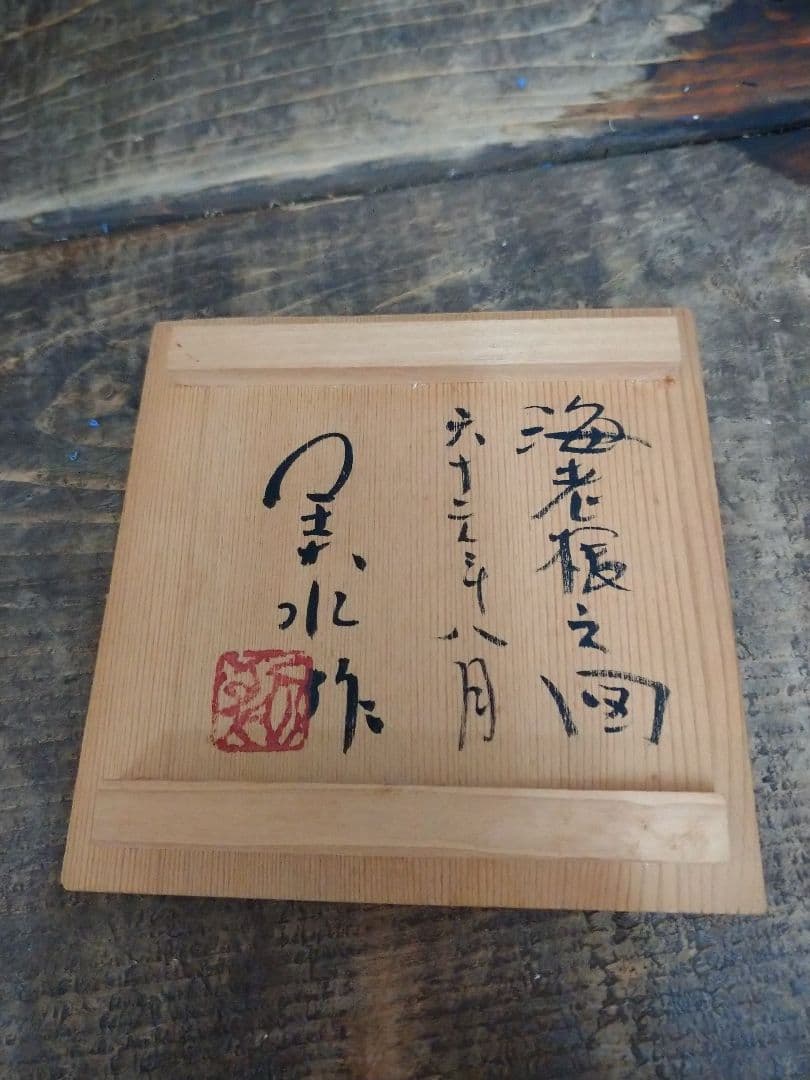 海老根之図
六十三年八月
水作